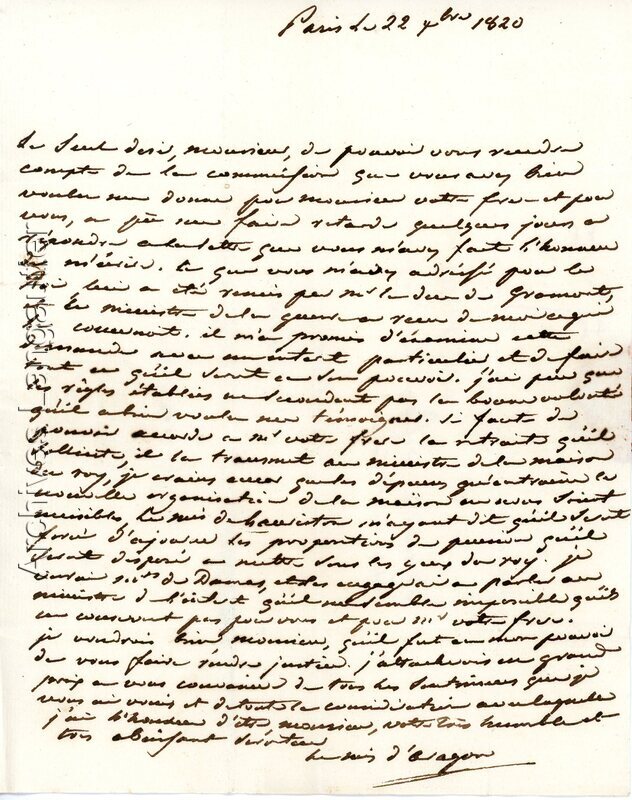 Paris Le 22 7bre 1820
Le Seul desir, monsieur, de pouvoir vous rendre
compte de la commission que vous avez bien
voulu me donner pour monsieur votre frere et pour
vous, a pu me faire retarder quelques jours a
répondre a la lettre que vous m'avez fait l'honneur
de m'écrire. Ce que vous m'avez adressé pour le
roi lui a été remis par mr le duc de Gramont,
Le ministre de la guerre a recu de moi ce qui
concernoit. il m'a promis d'examiner cette
demande avec un interet particulier et de faire
tout ce qu'il seroit en son pouvoir. j'ai peur que
les règles établies ne secondent pas la bonne volonté
qu'il a bien voulu me témoigner. Si faute de
pouvoir accorder a mr votre frere la retraite qu'il
sollicite, il la transmet au ministre de la maison
du roy, je crains encor que les dépenses qu'entraine la
nouvelle organisation de la maison ne vous soient
nuisibles, Le mis de Lauriston m'ayant dit qu'il seroit
forcé d'ajourner les propositions de pension qu'il
seroit disposé a mettre sous les yeux du roy. je
verrai mrs de Damas, et les engagerai a parler au
ministre de l'interet qu'il me semble impossible qu'ils
ne conservent pas pour vous et pour mr votre frere.
je voudrois bien monsieur, qu'il fut en mon pouvoir
de vous faire rendre justice. j'attacherois un grand
prix a vous convaincre de tous les sentimens que je
vous ai voués et de toute la consideration avec laquelle
j'ai l'honneur d'etre monsieur, votre très humble et
très obeissant serviteur
Le mis d'aragon